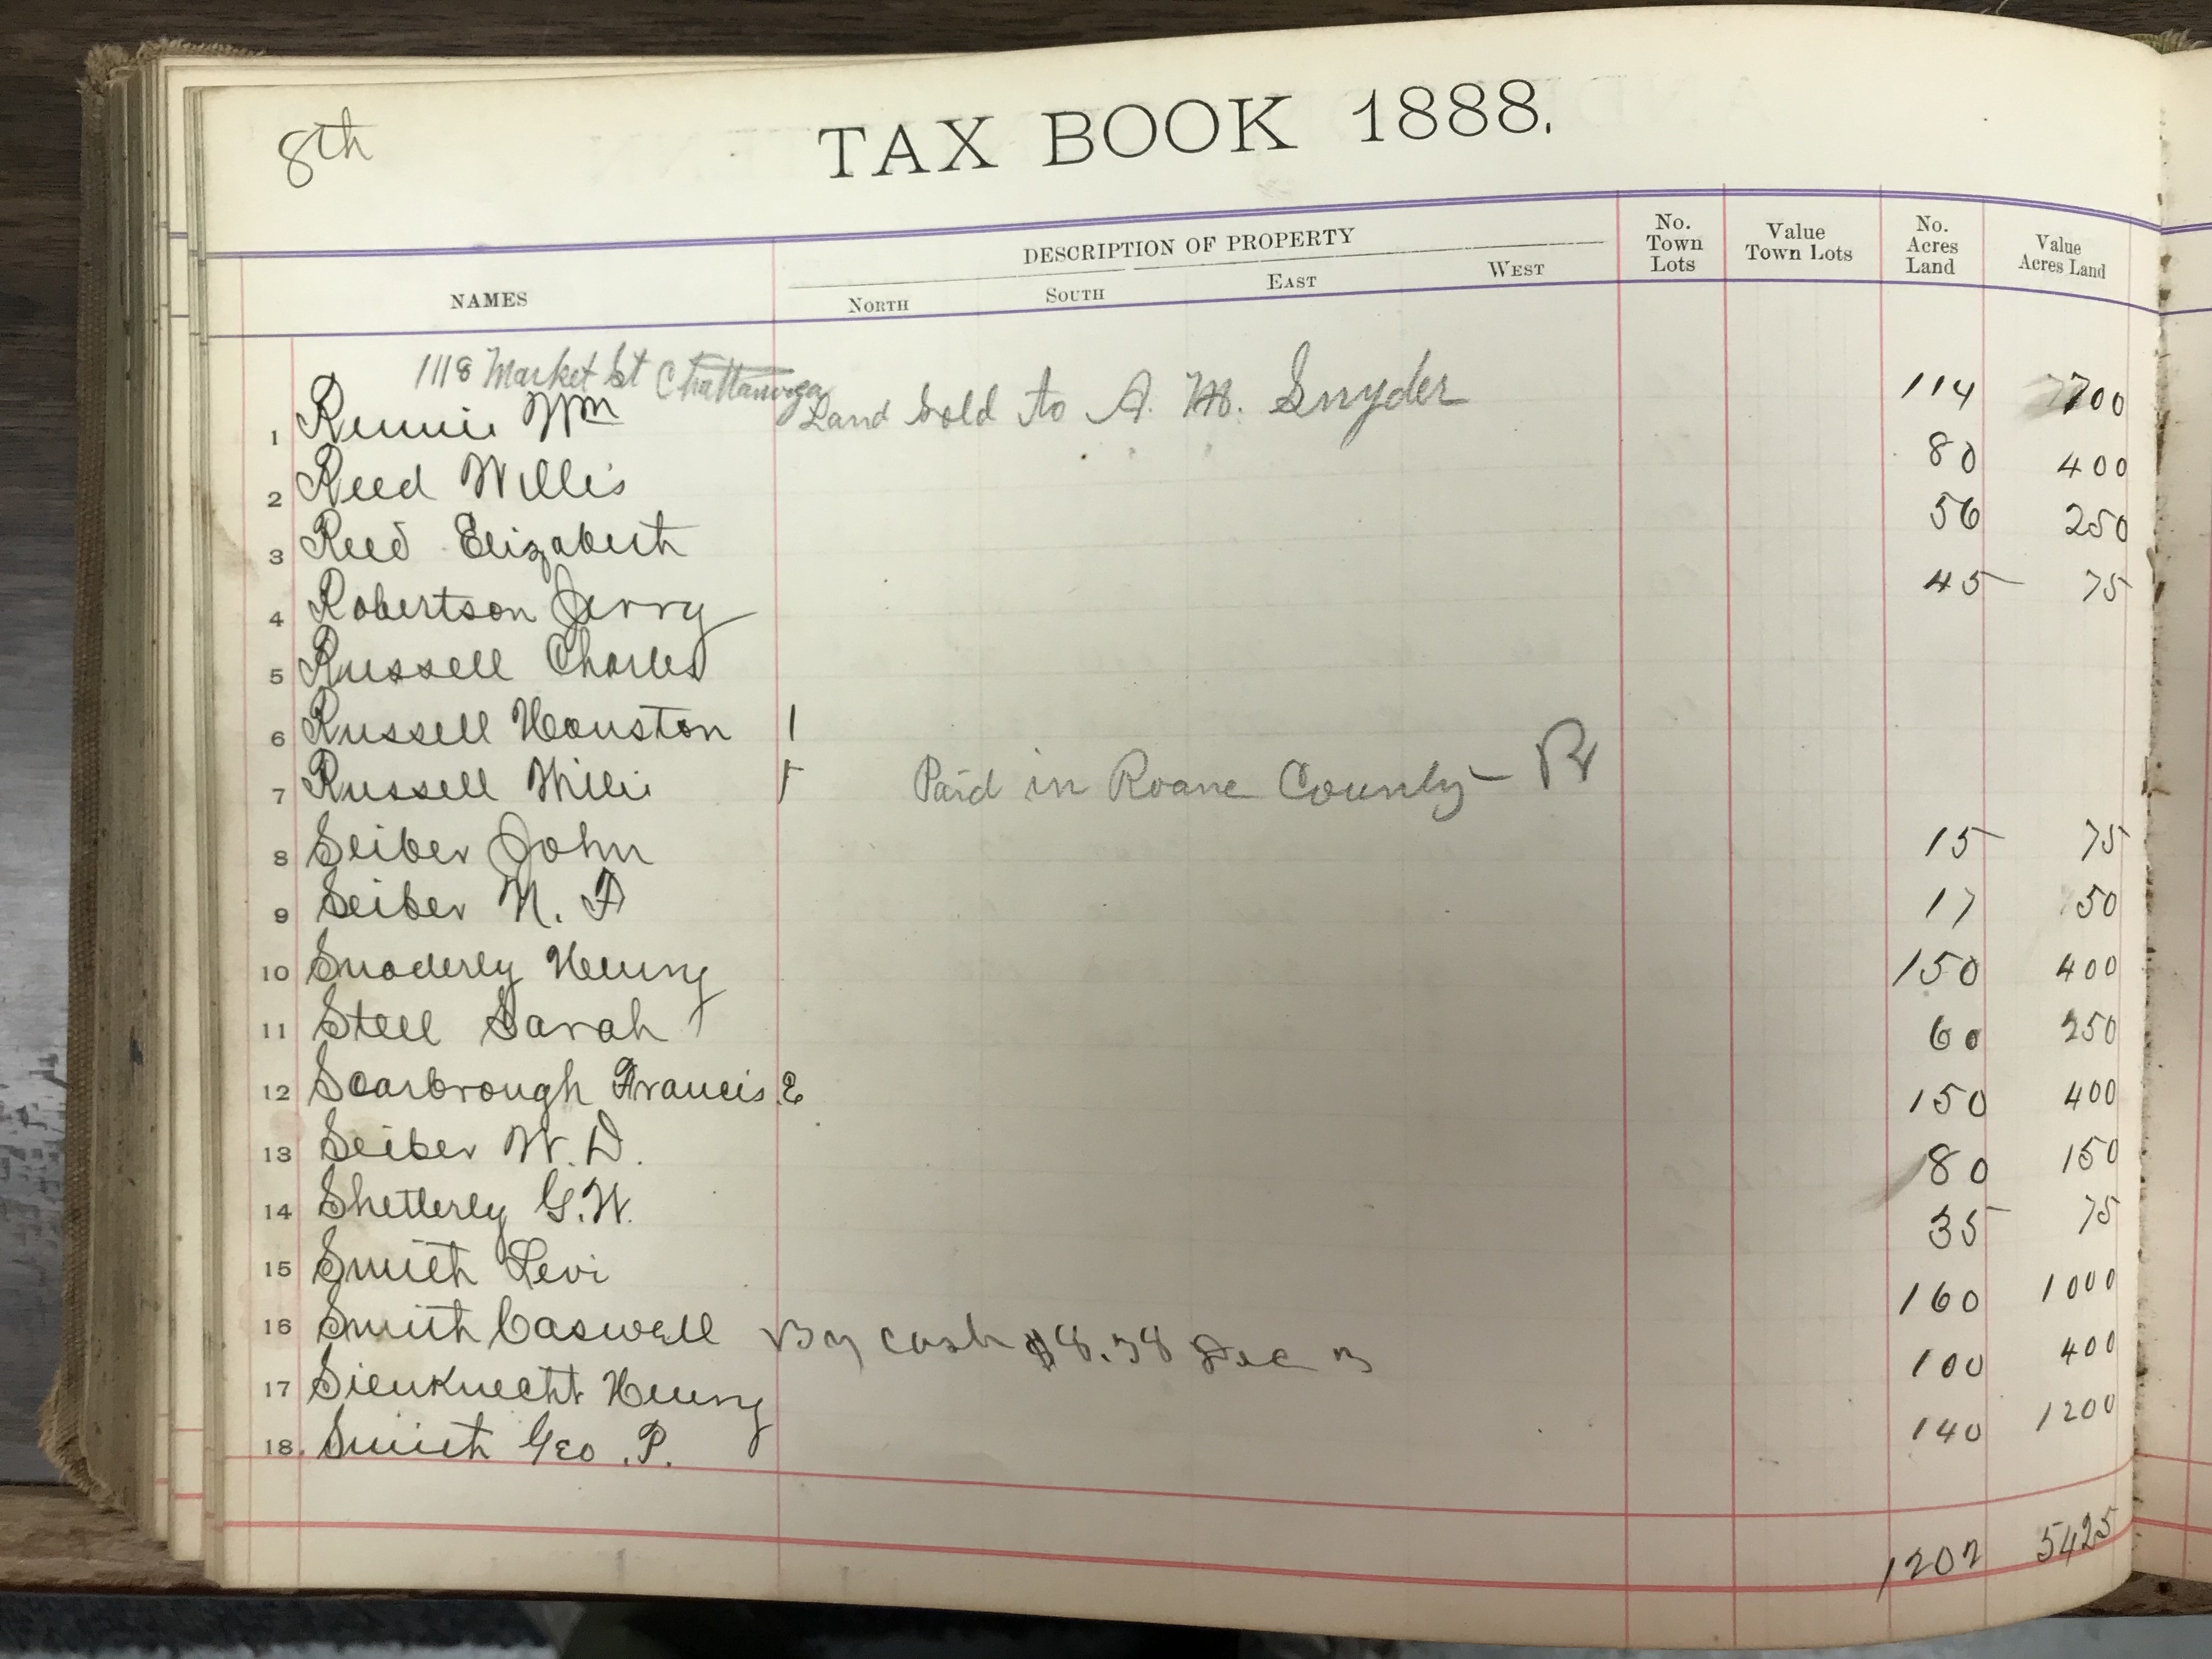 8th
TAX BOOK 1888.
NAMES DESCRIPTION OF PROPERTY No. Town Lots Value Town Lots No. Acres Land Value Acres Land
North South East West
1118 Market St Chattanooga
1 Rennie Wm Land Sold to A. M. Snyder 114 700
2 Reed Willis 80 400
3 Reed Elizabeth 56 250
4 Robertson Jerry 45 75
5 Russell Charles
6 Russell Houston 1
7 Russell Willie Paid in Roane County
8 Seiber John 15 75
9 Seiber N. F 17 50
10 Snoderly Henry 150 400
11 Steel Sarah 60 250
12 Scarbrough Francis E 150 400
13 Seiber W. D. 80 150
14 Shetterly G. W. 35 75
15 Smith Levi 160 1000
16 Smith Caswell By cash $8.38 Dec 3 100 400
17 Sienknecht Henry 140 1200
18 Smith Geo. P.
1202 5425